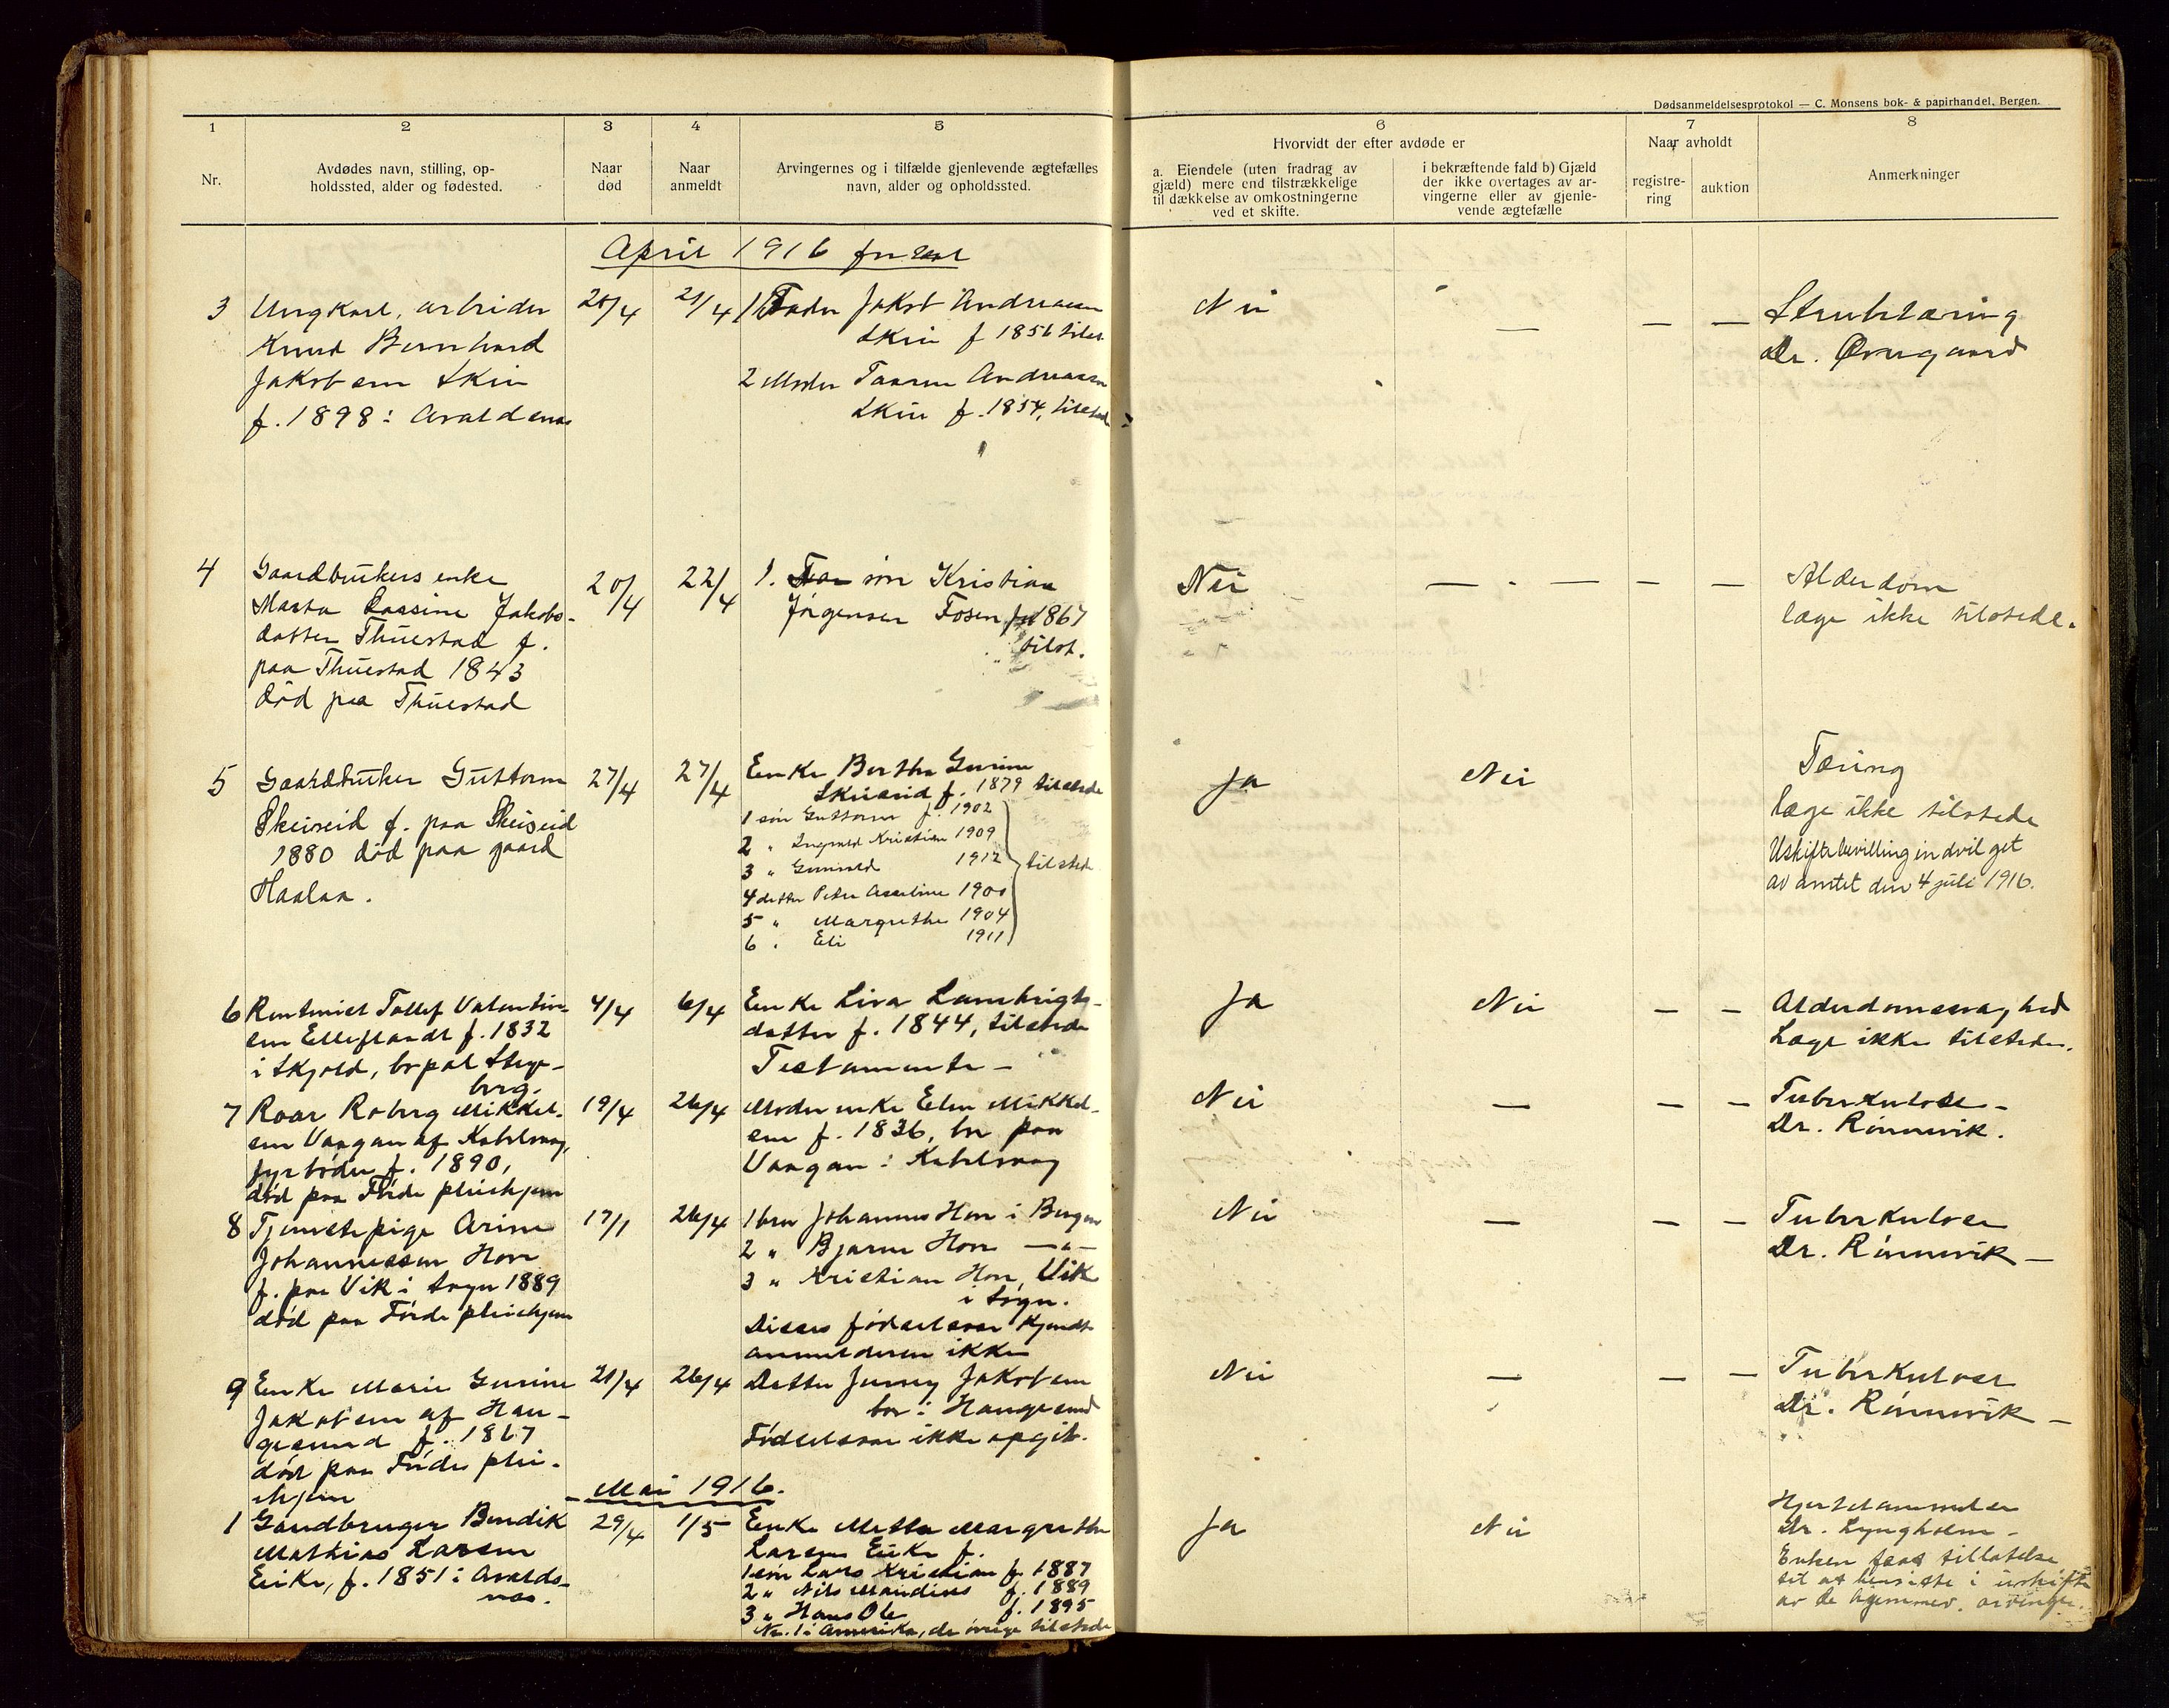 Dødsanmeldelsesprotokol — C. Monsens bok- & papirhandel, Bergen.
1 2 3 4 5 6 7 8
Nr.
Avdødes navn, stilling, op-
holdssted, alder og fødested.
Naar
død
Naar
anmeldt
Arvingernes og i tilfælde gjenlevende ægtefælles
navn, alder og opholdssted.
Hvorvidt der efter avdøde er
a. Eiendele (uten fradrag av
gjæld) mere end tilstrækkelige
til dækkelse av omkostningerne
ved et skifte.
i bekræftende fald b) Gjæld
der ikke overtages av ar-
vingerne eller av gjenle-
vende ægtefælle
Naar avholdt
registre-
ring
auktion
Anmerkninger
April 1916 fortsat
3 Ungkarl, arbeider
Knud Bernhard
Jakobsen Skeie
f. 1898 i Avaldsnes
20/4 21/4
1 Fader Jakob Andreassen
Skeie f 1856 tilst.
2 Moder Taarne Andreassen
Skeie f. 1854, tilsted
Nei — — —
Strubtæring
Dr. Øvregaard
4 Gaardbrukers enke
Marta Lassine Jakobs-
datter Thuestad f.
paa Thuestad 1843
död paa Thuestad
20/4 22/4
1. søn Kristian
Jörgensen Fosen f. 1867
tilst.
Nei — - — — —
Alderdom
læge ikke tilstede.
5 Gaardbruker Guttorm
Skeiseid f. paa Skeiseid
1880 död paa gaard
Haaland.
27/4 27/4
Enke Bertha Gurine
Skeiseid f. 1879 tilstede
1 søn Guttorm f. 1902
2 " Ingvald Kristian 1909
3 " Gunvald 1912
4 datter Petra Asseline 1900
5 " Margrethe 1904
6 " Eli 1911
tilstede
Ja Nei
Tæring
læge ikke tilstede
Uskiftebevilling indvilget
av amtet den 4 juli 1916.
6 Rentenist Tollef Valentin-
sen Elleflaadt f. 1832
i Skjold, bopæl Stege-
berg.
4/4 6/4
Enke Liva Lambrigts-
datter f. 1844, tilstede
Testamente —
Ja Nei — —
Alderdomssvaghed
Læge ikke tilstede.
7 Roar Roberg Mikkel-
sen Vaagan af Kabelvaag,
fyrböder f. 1890,
död paa Förde pleiehjem
19/4 26/4
Moder enke Elen Mikkel-
sen f. 1836, bor paa
Vaagan i Kabelvaag
Nei — — —
Tuberkulose —
Dr. Rönnevik.
8 Tjenestepige Arine
Johannessen Hove
f. paa Vik i Sogn 1889
död paa Förde pleiehjem
17/1 26/4
1 bror Johannes Hove i Bergen
2 " Bjarne Hove — " —
3 " Kristian Hove, Vik
i Sogn.
Disses fødselsaar kjendte
anmelderen ikke
Nei — — —
Tuberkulose
Dr. Rönnevik —
9 Enke Marie Gurine
Jakobsen af Hau-
gesund f. 1867
död paa Förde plei-
ehjem
21/4 26/4
Datter Jenny Jakobsen
bor i Haugesund
Fødselsaar ikke opgit.
Nei — — —
Tuberkulose
Dr. Rönnevik —
Mai 1916.
1 Gaardbruger Bendik
Mathias Larsen
Eike, f. 1851 i Avalds-
nes.
29/4 1/5
Enke Metta Margrethe
Larsen Eike f.
1 søn Lars Kristian f. 1887
2 " Nils Mandius f. 1889
3 " Hans Ole f. 1895
Nr. 1 i Amerika, de øvrige tilstede
Ja Nei
Hjertelammelse
Dr. Lyngholm —
Enken faat tillatelse
til at hensitte i uskifte
av de hjemmev. arvinger.